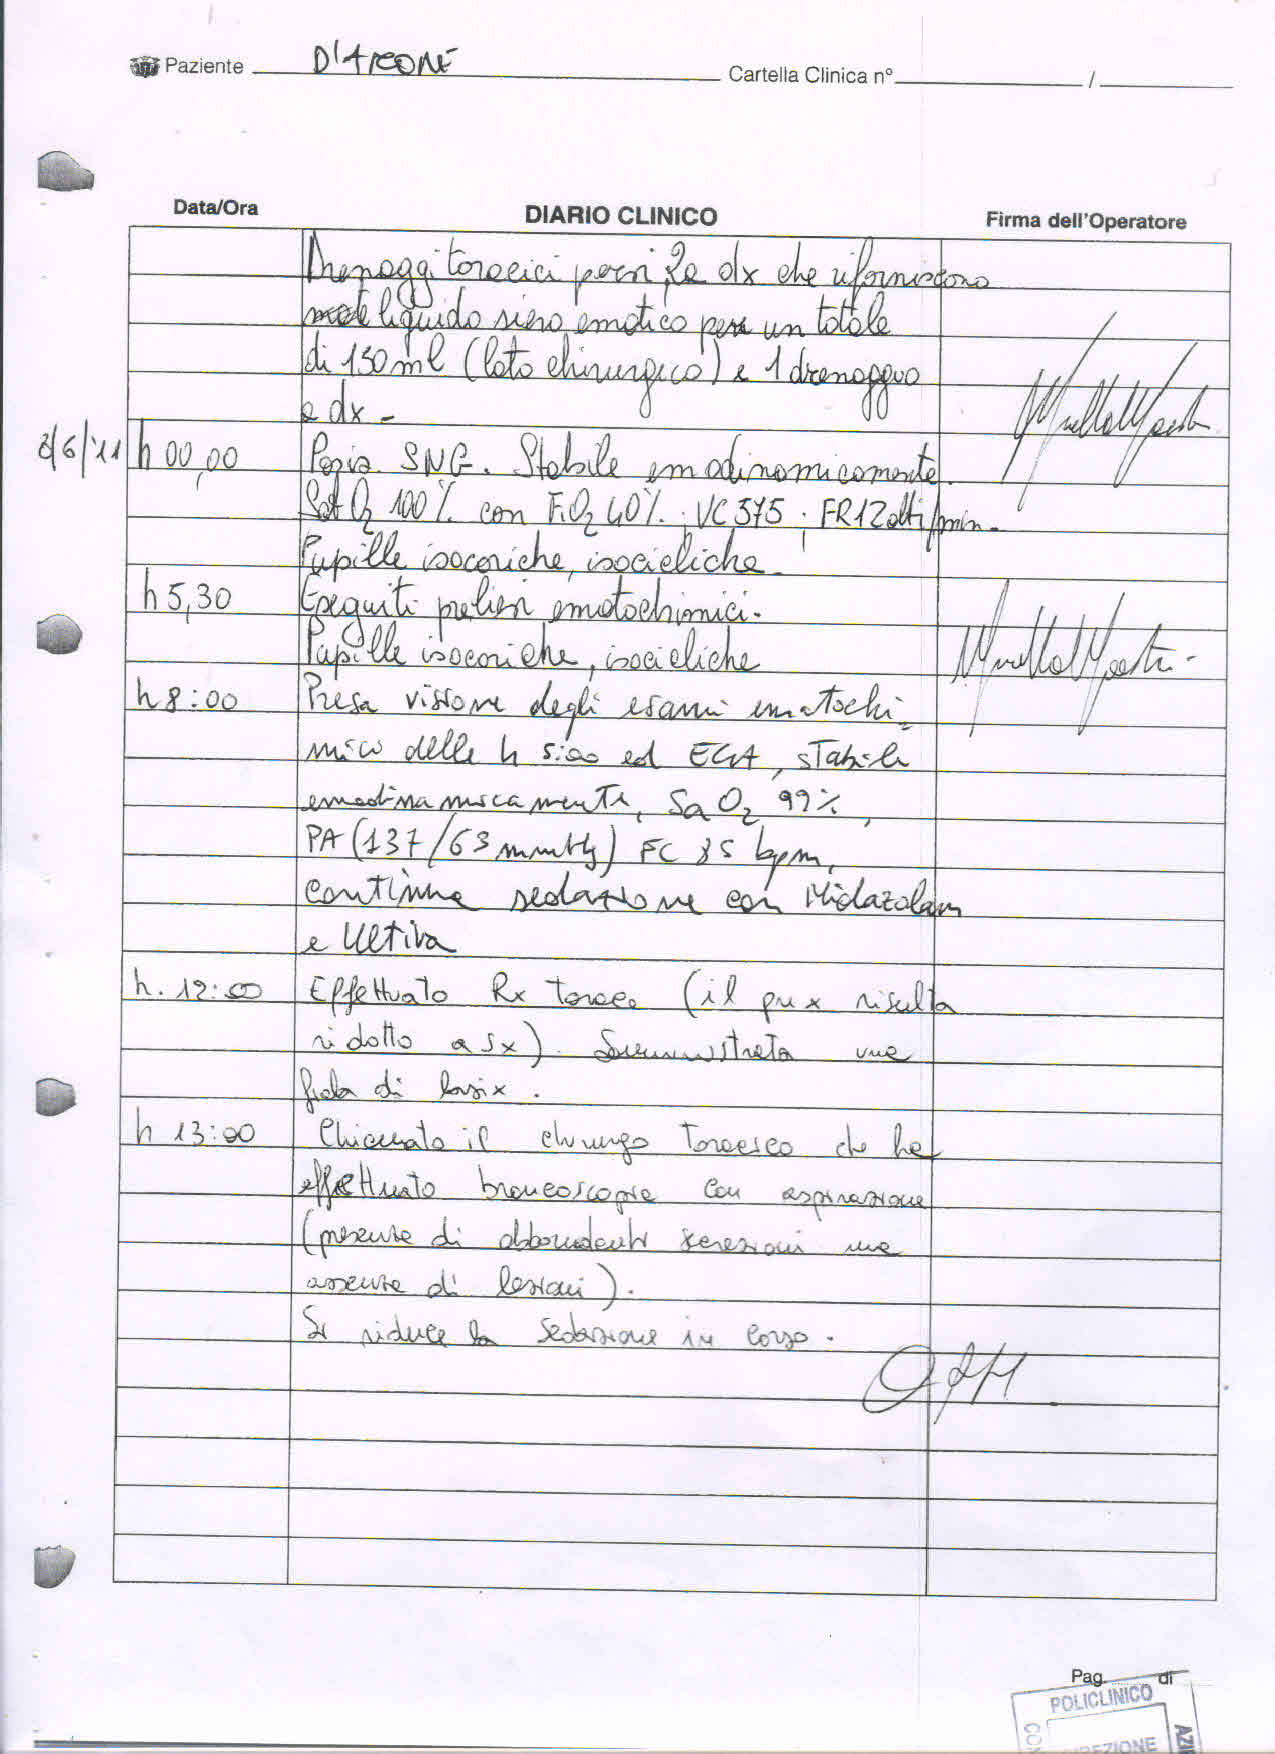 Paziente D'ARCONE Cartella Clinica n° /
Data/Ora DIARIO CLINICO Firma dell'Operatore
Drenaggi toracici pervi, 2 a dx che riforniscono
liquido siero ematico per un totale
di 130 ml (lato chirurgico) e 1 drenaggio
a dx -
8/6/'11 h 00,00 Posiz. SNG. Stabile emodinamicamente.
Sat O2 100% con FiO2 40%; VC 575; FR 12 atti/min.
Pupille isocoriche, isocicliche.
h 5,30 Eseguiti prelievi ematochimici.
Pupille isocoriche, isocicliche
h 8:00 Presa visione degli esami ematochi-
mico delle h 5:00 ed EGA, stabile
emodinamicamente, SaO2 99%,
PA (137/63 mmHg) FC 85 bpm,
continua sedazione con Midazolam
e Ultiva
h. 12:00 Effettuato Rx torace (il pnx risulta
ridotto a sx). Somministrata una
fiala di lasix.
h 13:00 Chiamato il chirurgo toracico che ha
effettuato broncoscopia con aspirazione
(presenza di abbondanti secrezioni ma
assenza di lesioni).
Si riduce la sedazione in corso.
Pag. di
POLICLINICO